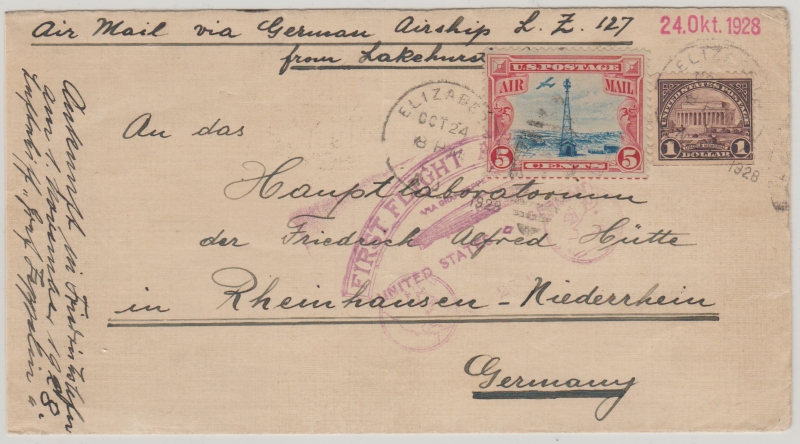 Air Mail via German Airship L. Z. 127
from Lakehurst
24. Okt. 1928
U.S. POSTAGE
AIR MAIL
5 CENTS 5
UNITED STATES POSTAGE
1 1
DOLLAR
ELIZABE
OCT 24
1928
ELIZABE
1928
FIRST FLIGHT A
VIA
UNITED STAT
An das
Hauptlaboratorium
der Friedrich Alfred Hütte
in Rheinhausen-Niederrhein
Germany
Ankunft in Friedrichshafen
am 1 November 1928.
Luftschiff „Graf Zeppelin"